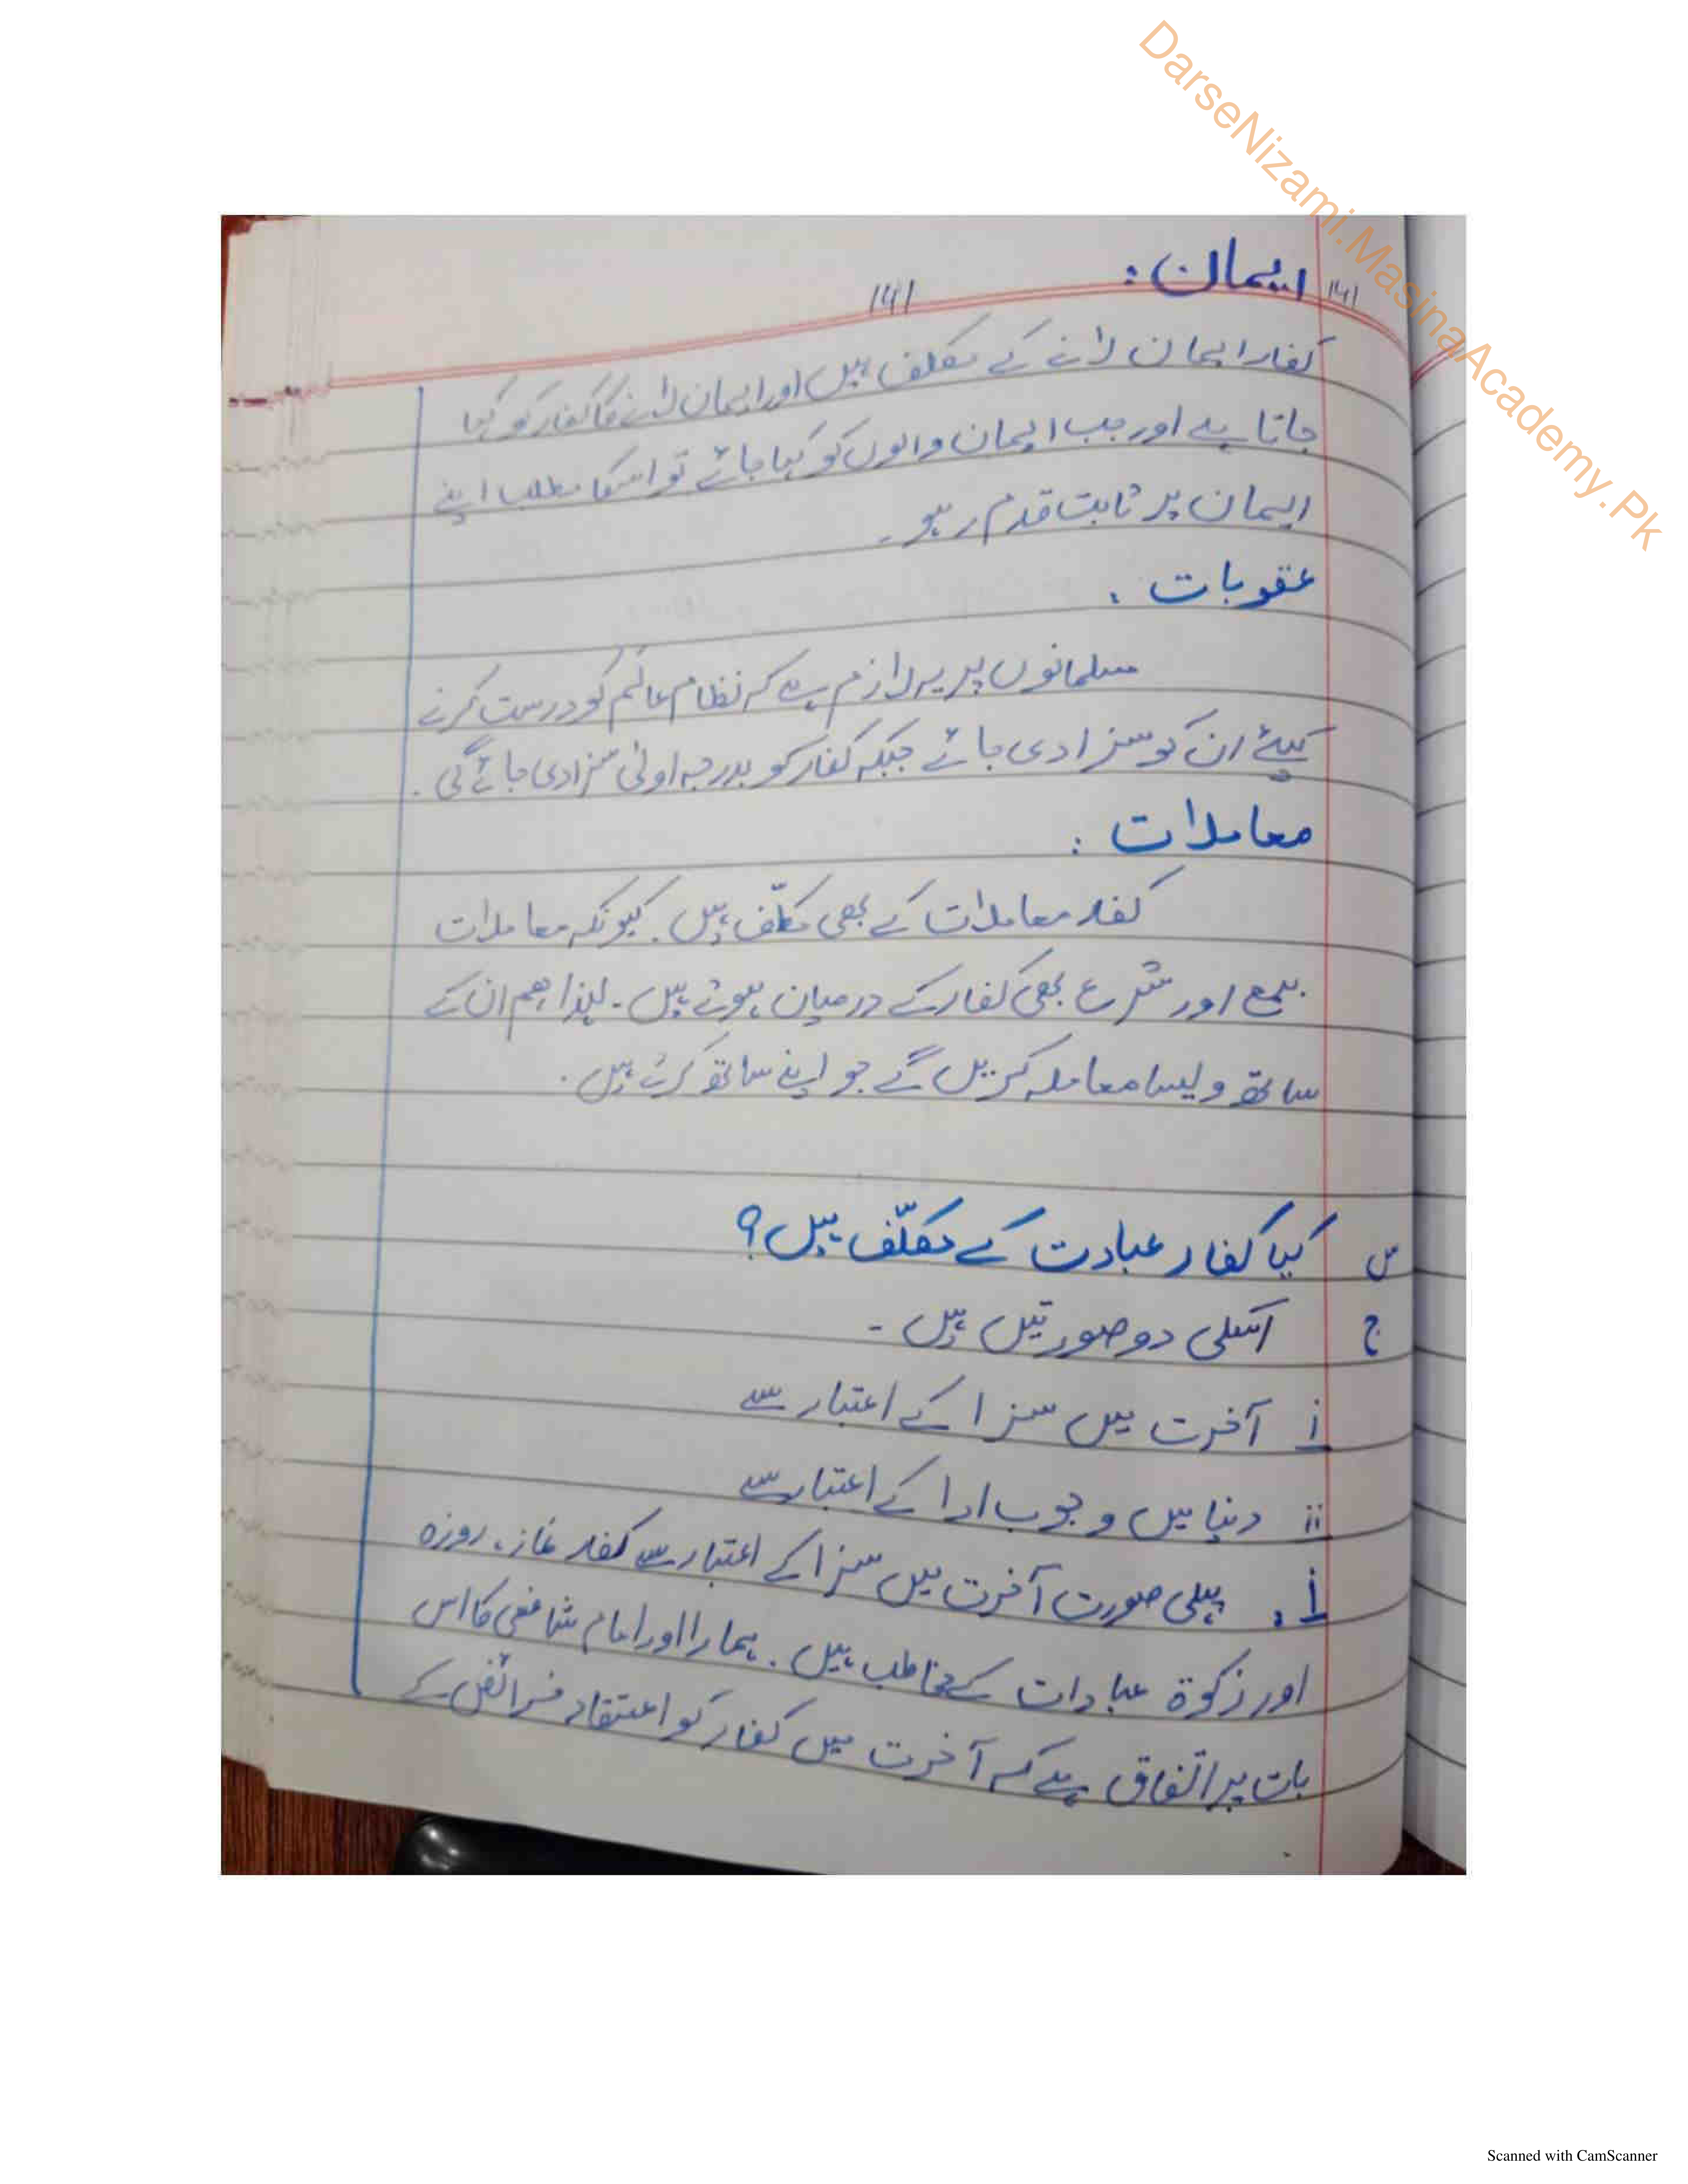 DarseNizami.MasinaAcademy.Pk
ایمان:
141
141
کفار ایمان لانے کے مکلف ہیں اور ایمان لانے کا کفار کو کہا
جاتا ہے اور جب ایمان والوں کو کہا جائے تو اسکا مطلب اپنے
ایمان پر ثابت قدم رہو۔
عقوبات:
مسلمانوں پر یہ لازم ہے کہ نظام عالم کو درست کرنے
کیلئے ان کو سزا دی جائے جبکہ کفار کو بدرجہ اولیٰ سزا دی جائے گی۔
معاملات:
کفار معاملات کے بھی مکلّف ہیں۔ کیونکہ معاملات
بیع اور شرع بھی کفار کے درمیان ہوتے ہیں۔ لہٰذا ہم ان کے
ساتھ ویسا معاملہ کریں گے جو اپنے ساتھ کرتے ہیں۔
س کیا کفار عبادت کے مکلّف ہیں؟
ج اسکی دو صورتیں ہیں۔
i آخرت میں سزا کے اعتبار سے
ii دنیا میں وجوب ادا کے اعتبار سے
i. پہلی صورت آخرت میں سزا کے اعتبار سے کفار نماز، روزہ
اور زکوۃ عبادات کے مخاطب ہیں۔ ہمارا اور امام شافعی کا اس
بات پر اتفاق ہے کہ آخرت میں کفار کو اعتقاد فرائض کے
Scanned with CamScanner